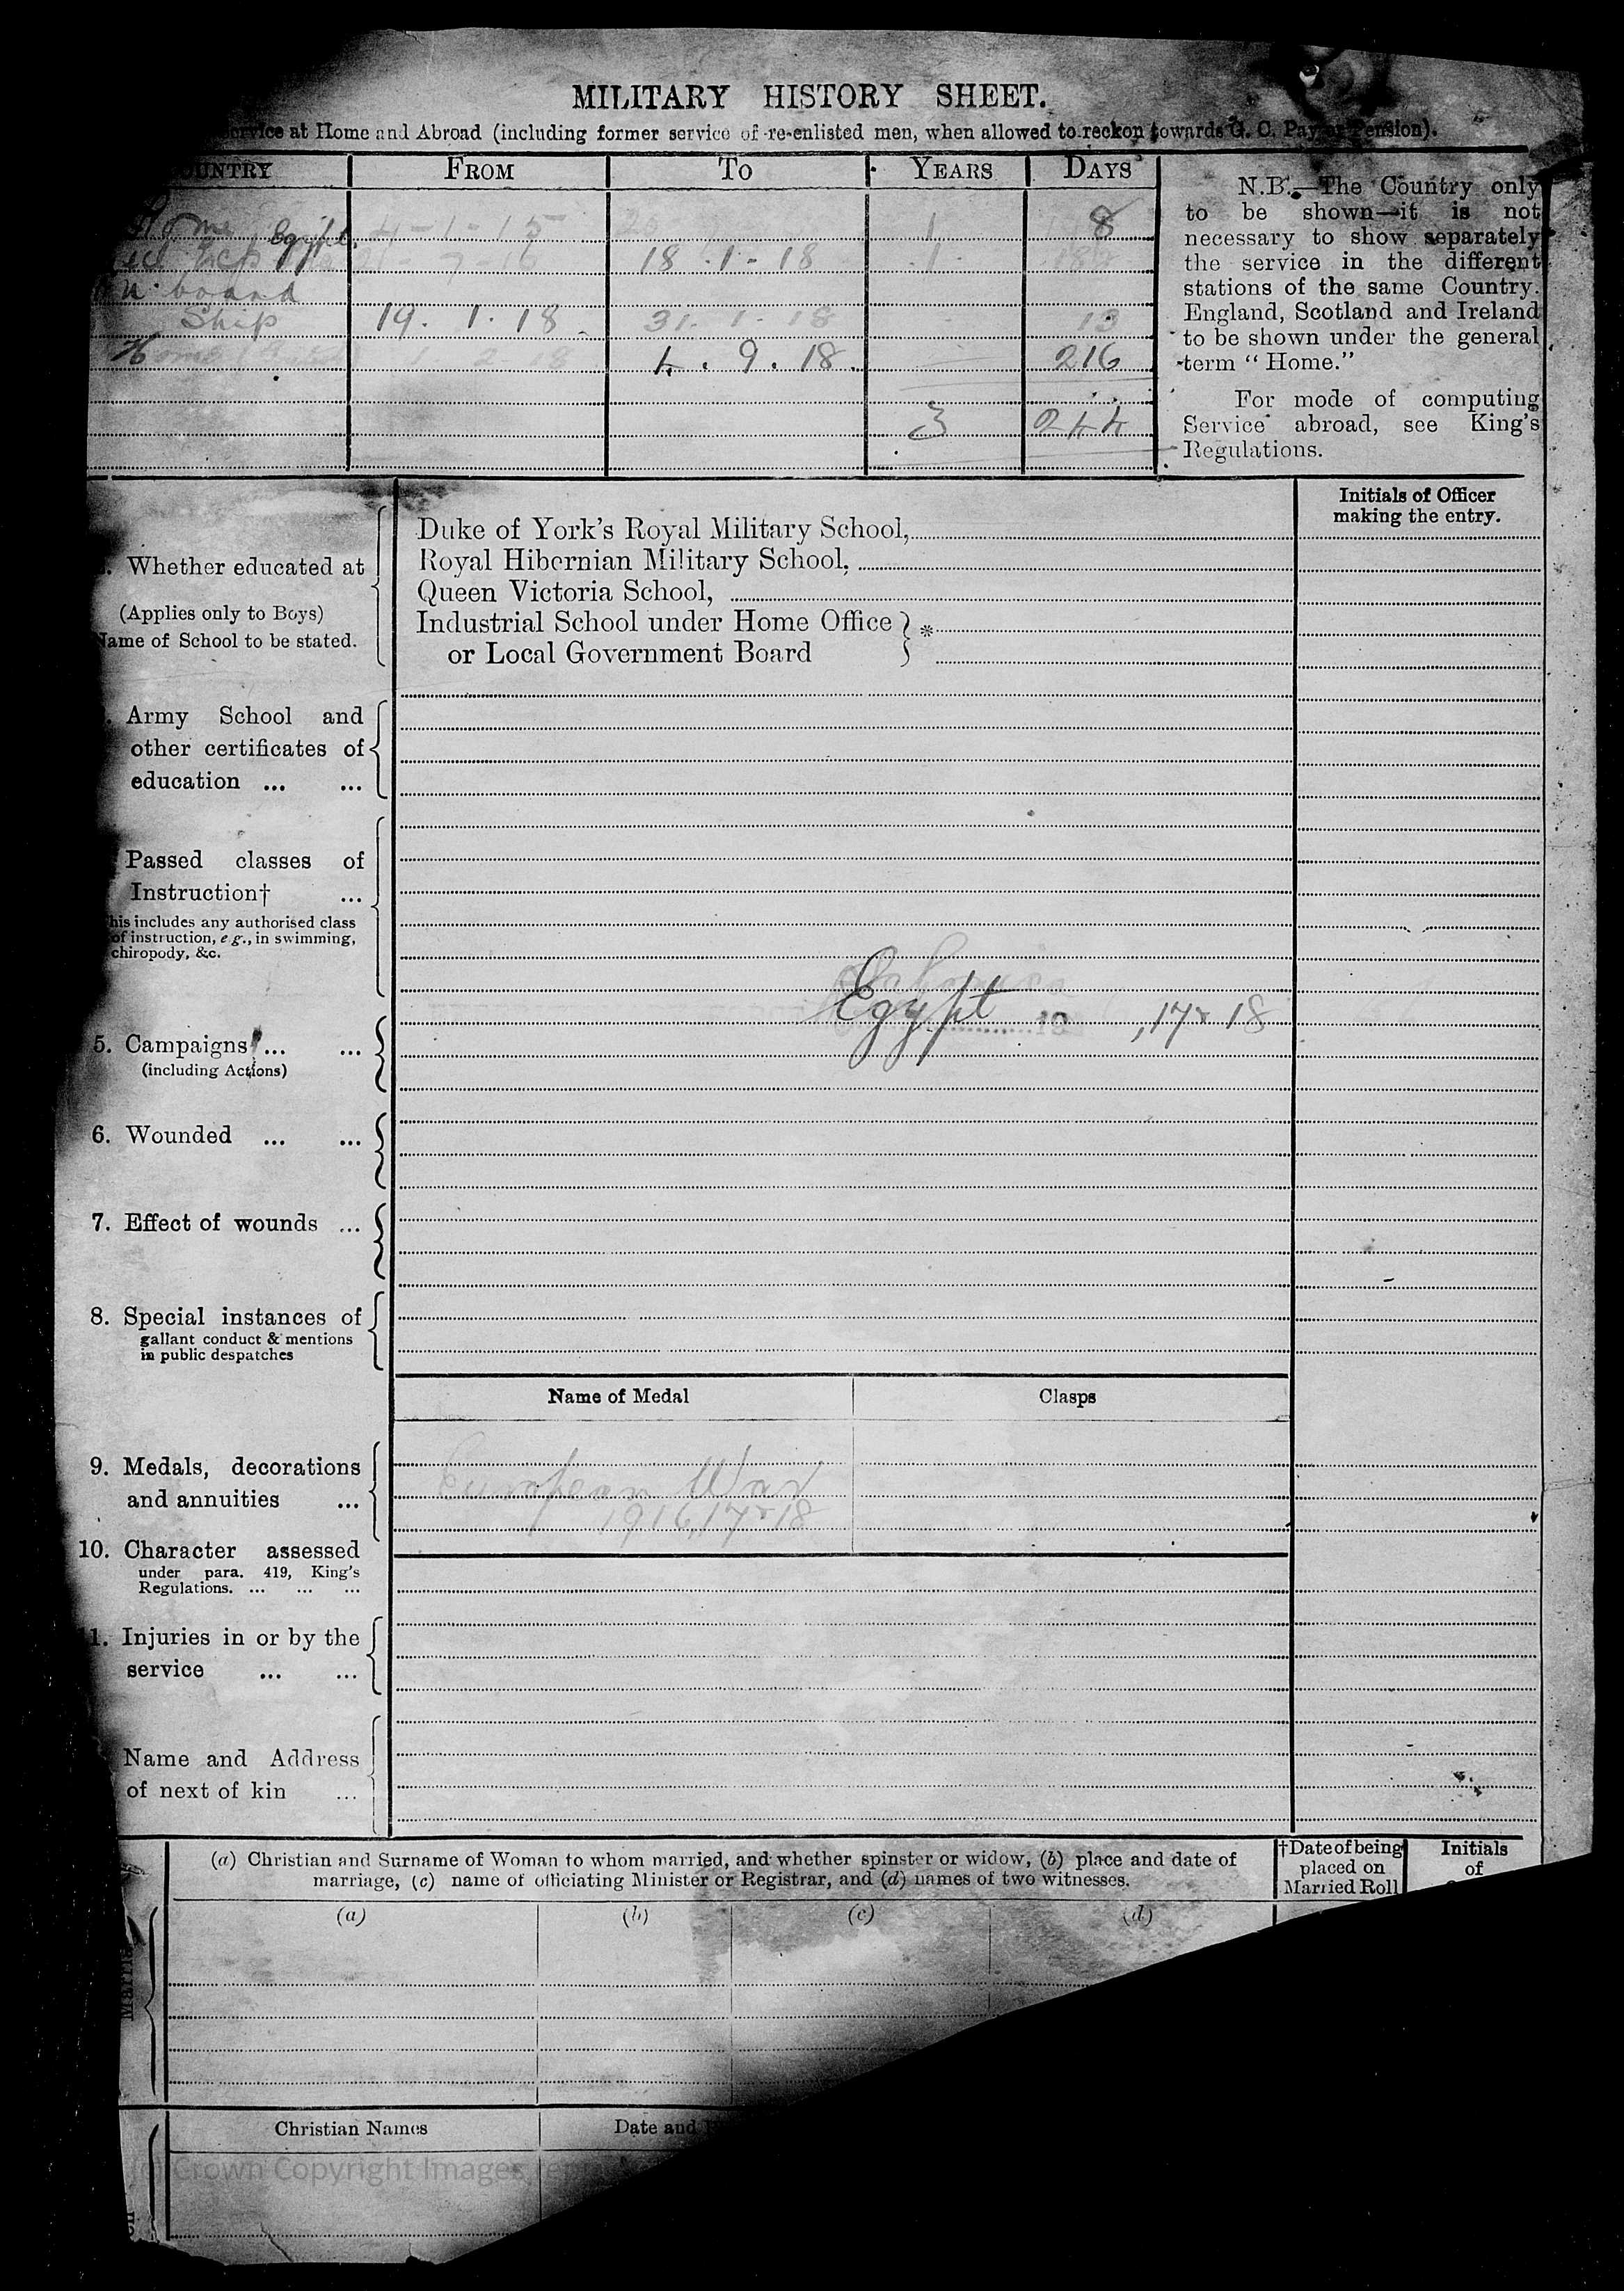 MILITARY HISTORY SHEET.
Service at Home and Abroad (including former service of re-enlisted men, when allowed to reckon towards G. C. Pay or Pension).
COUNTRY FROM TO YEARS DAYS
Home 4-1-15 1 8
Egypt. 18.1-18 1
on board
Ship 19.1.18 31-1-18 13
Home 1 2 18 4.9.18 216
3 244
N.B.—The Country only
to be shown—it is not
necessary to show separately
the service in the different
stations of the same Country.
England, Scotland and Ireland
to be shown under the general
term “Home.”
For mode of computing
Service abroad, see King's
Regulations.
Initials of Officer
making the entry.
Whether educated at
(Applies only to Boys)
Name of School to be stated.
Duke of York's Royal Military School,
Royal Hibernian Military School,
Queen Victoria School,
Industrial School under Home Office
or Local Government Board } *
Army School and
other certificates of
education ... ...
Passed classes of
Instruction† ...
This includes any authorised class
of instruction, e g., in swimming,
chiropody, &c.
Egypt ,17 & 18
5. Campaigns ... ...
(including Actions)
6. Wounded ... ...
7. Effect of wounds ...
8. Special instances of
gallant conduct & mentions
in public despatches
Name of Medal Clasps
9. Medals, decorations
and annuities ...
European War
1916,17 & 18
10. Character assessed
under para. 419, King's
Regulations. ... ... ...
11. Injuries in or by the
service ... ...
Name and Address
of next of kin ...
(a) Christian and Surname of Woman to whom married, and whether spinster or widow, (b) place and date of
marriage, (c) name of officiating Minister or Registrar, and (d) names of two witnesses.
†Date of being
placed on
Married Roll
Initials
of
(a) (b) (c) (d)
Christian Names Date and
(c) Crown Copyright Images